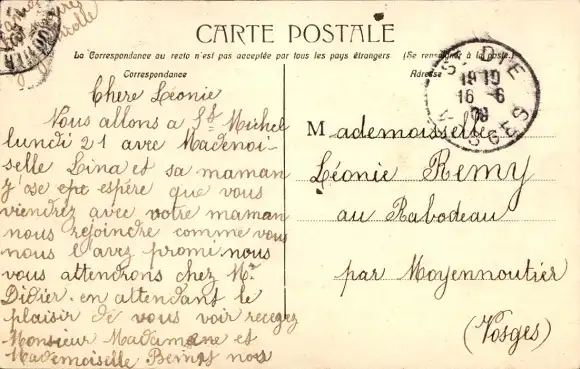 CARTE POSTALE
La Correspondance au recto n'est pas acceptée par tous les pays étrangers (Se renseigner à la poste.)
Correspondance
Adresse
Chere Léonie
Nous allons a St Michel
lundi 21 avec Madenoi-
selle Lina et sa maman
J'ose espère que vous
viendrez avec votre maman
nous rejoindre comme vous
nous l'avez promi. nous
vous attendrons chez Mr
Didier. en attendant le
plaisir de vous voir recevez
Monsieur Madame et
Mademoiselle nos
ST DIE
19 10
16 - 6
09
VOSGES
Mademoisselle
Léonie Remy
au Rabodeau
par Moyennoutier
(Vosges)